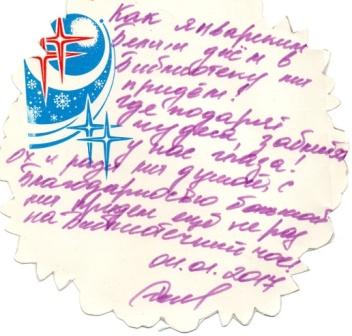 Как январским
белым днём в
библиотеку мы
придём!
Где подарят
чудеса, заблестят
у нас глаза!
От и рады мы душой, с
благодарностью большой
мы придем ещё не раз
на библиотечный час!
04.01.2017